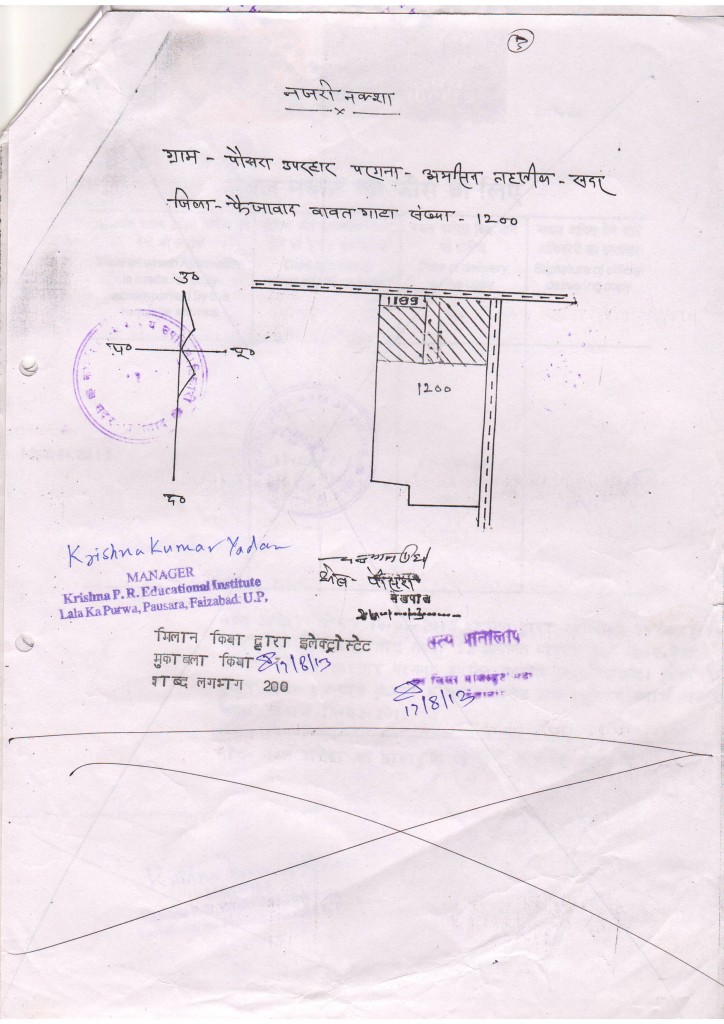 नजरी नक्शा
ग्राम - पौसरा उपरहार परगना - अमसिन तहसील - सदर
जिला - फैजाबाद बावत गाटा संख्या - 1200
उ०
प०
पू०
द०
1199
1200
Krishna Kumar Yadav
MANAGER
Krishna P. R. Educational Institute
Lala Ka Purwa, Pausara, Faizabad. U.P.
क्षेत्र - पौसरा
लेखपाल
मिलान किया द्वारा इलेक्ट्रोस्टेट
मुकाबला किया 17/8/13
शब्द लगभग 200
सत्य प्रतिलिपि
17/8/13